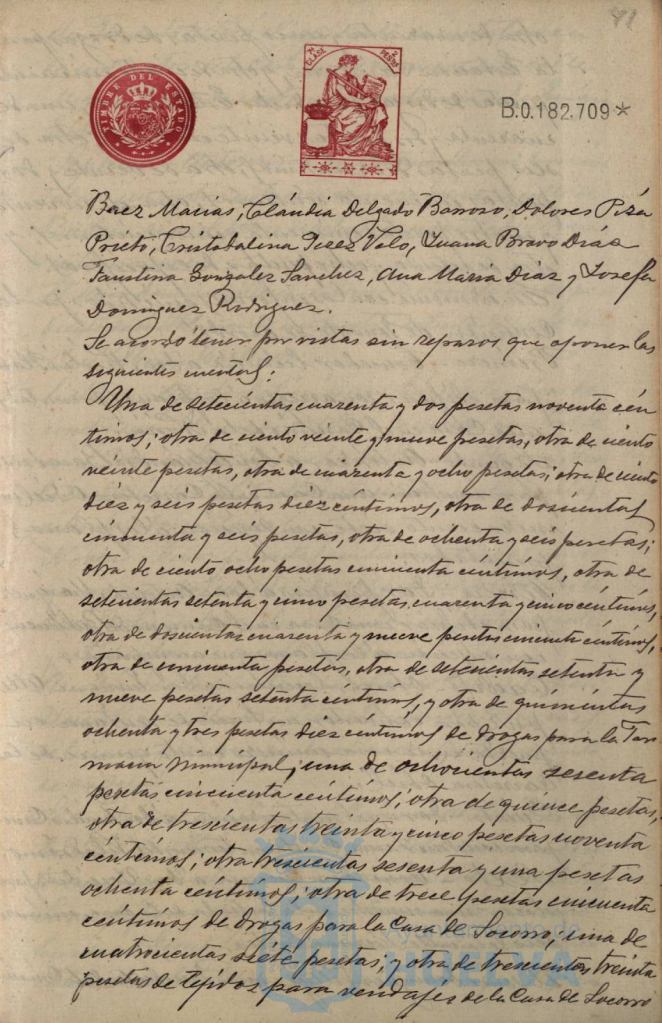 91
TIMBRE DEL ESTADO
2ª CLASE
2 PESOS
B.0.182.709*
Baez Macias, Cláudia Delgado Barroso, Dolores Piza
Prieto, Cristobalina Perez Velo, Juana Bravo Diás
Faustina Gonzalez Sanchez, Ana Maria Diaz y Josefa
Dominguez Rodriguez.
Se acordó tener por vistas sin reparos que oponer las
siguientes cuentas:
Una de setecientas cuarenta y dos pesetas noventa cén
timos; otra de ciento veinte y nueve pesetas, otra de ciento
veinte pesetas, otra de cuarenta y ocho pesetas; otra de ciento
diez y seis pesetas diez céntimos, otra de doscientas
cincuenta y seis pesetas, otra de ochenta y seis pesetas;
otra de ciento ocho pesetas cincuenta céntimos, otra de
setecientas setenta y cinco pesetas, cuarenta y cinco céntimos,
otra de doscientas cuarenta y nueve pesetas cincuenta céntimos,
otra de cincuenta pesetas, otra de setecientas setenta y
nueve pesetas setenta céntimos, y otra de quinientas
ochenta y tres pesetas diez céntimos de drogas para la Far
macia Municipal; una de ochocientas sesenta
pesetas cincuenta centimos; otra de quince pesetas,
otra de trescientas treinta y cinco pesetas noventa
céntimos; otra trescientas sesenta y una pesetas
ochenta centimos; otra de trece pesetas cincuenta
céntimos de drogas para la Casa de Socorro; una de
cuatrocientas siete pesetas; y otra de trescientas treinta
pesetas de tejidos para vendajes de la Casa de Socorro
HUELVA